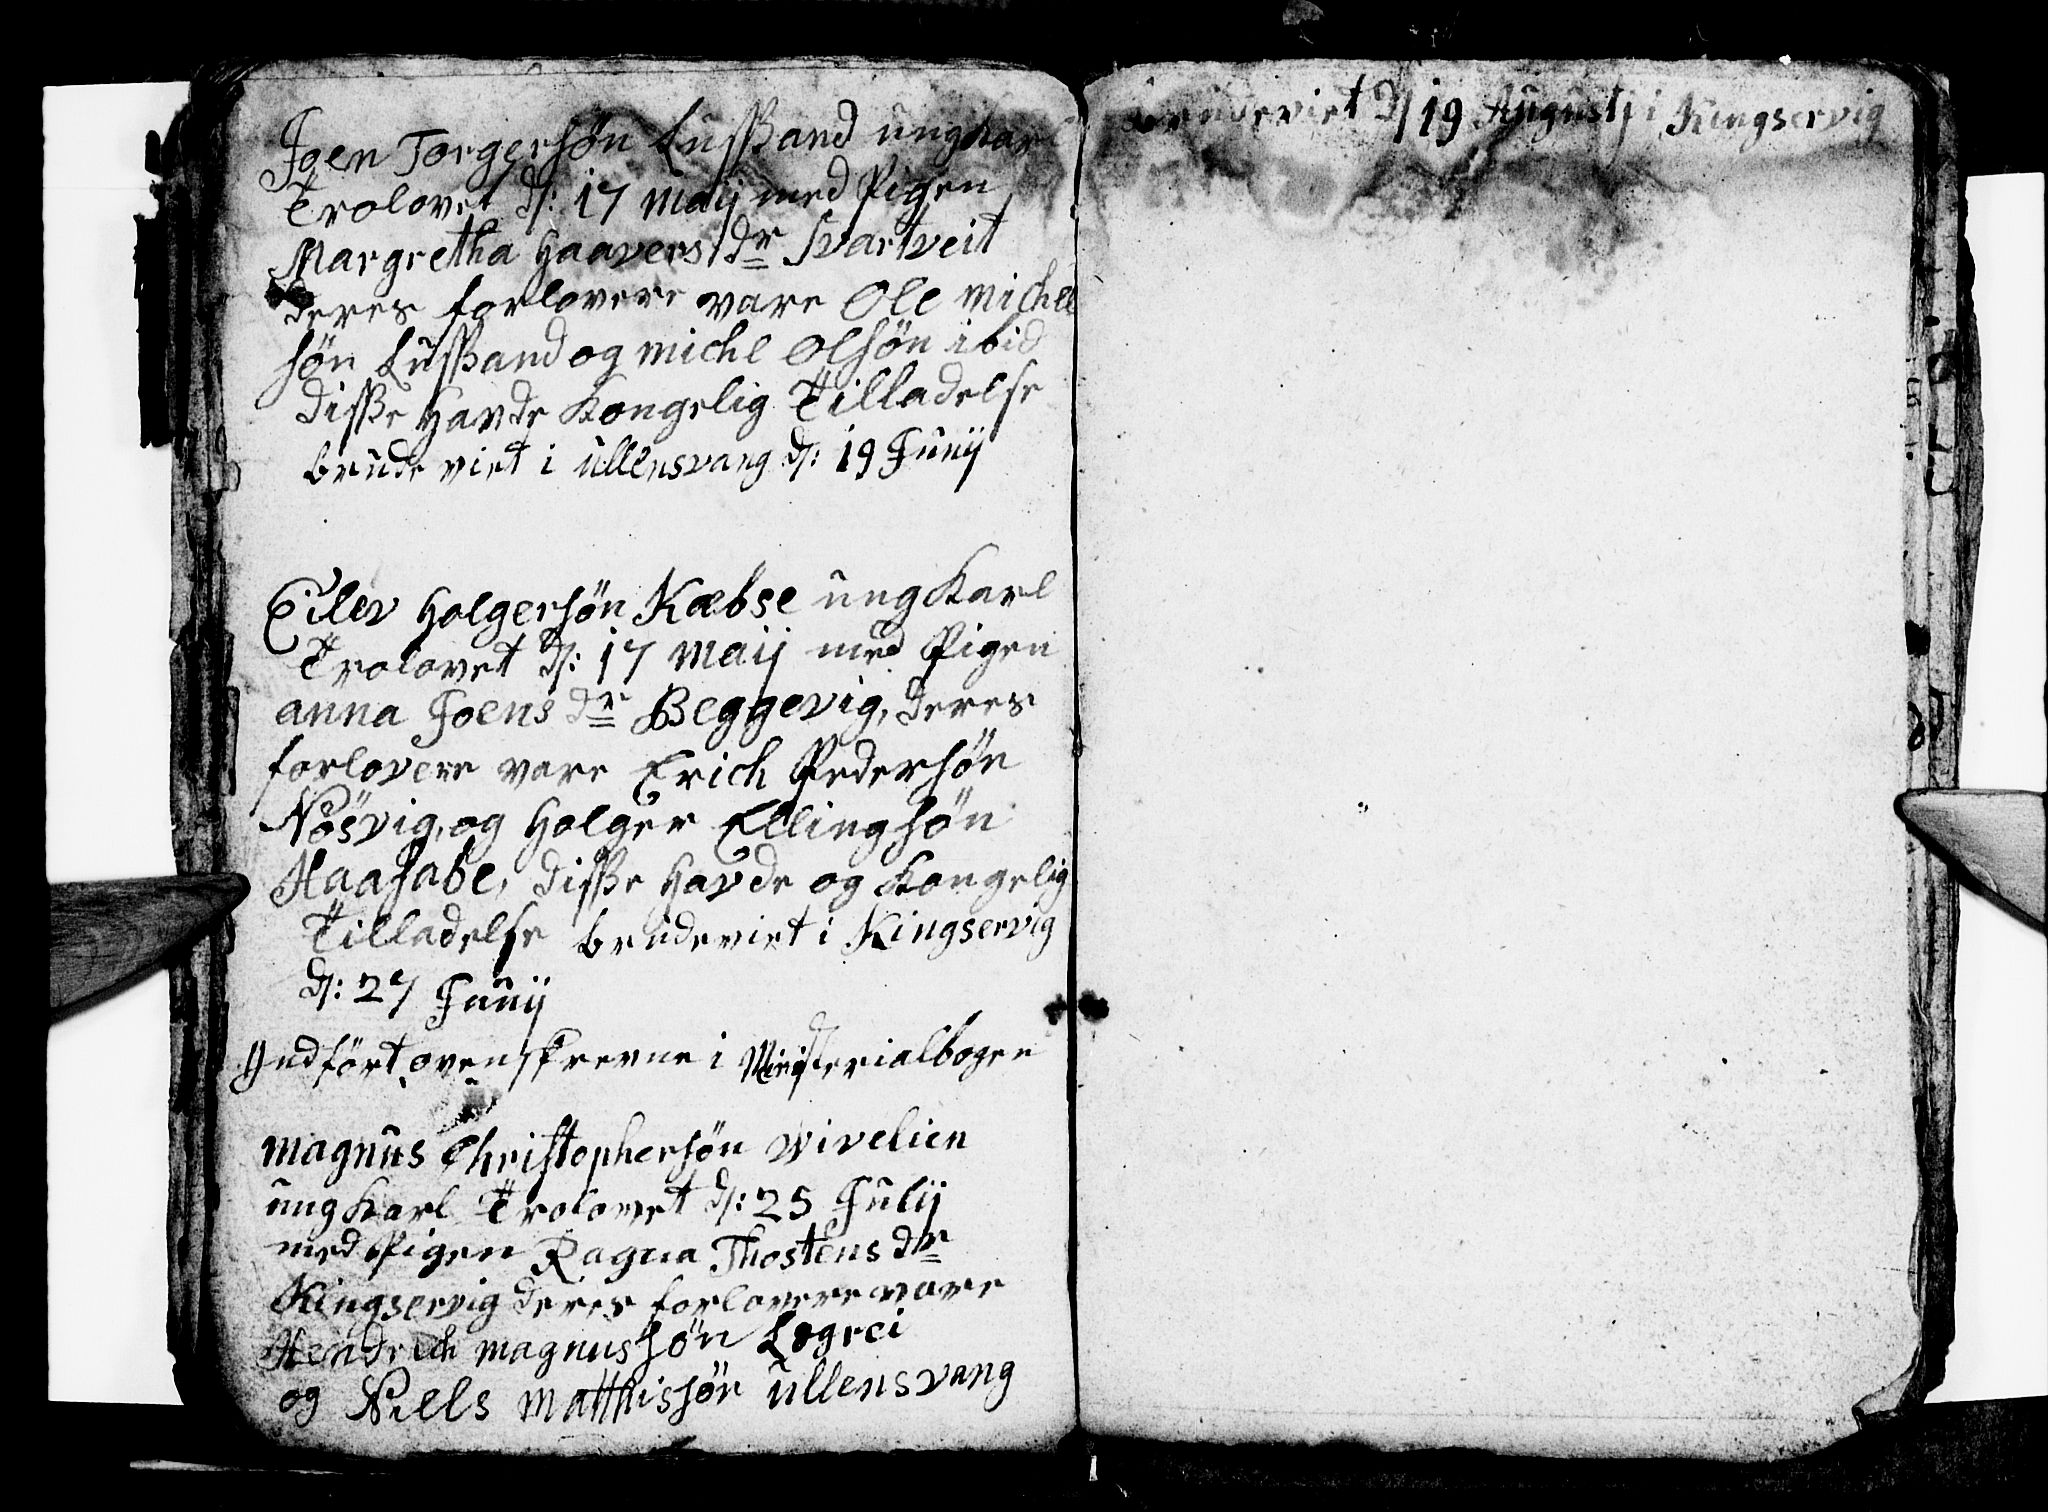 Joen Torgersøn Lussand ungkarl
Trolovet d: 17 Maij med Pigen
Margretha Haaversdr Svartveit
deres forlovere vare Ole Michel
søn Lussand og Michl Olsøn ibid
disse havde Kongelig Tilladelse
brudeviet i Ullensvang d: 19 Junij
Eilev Holgersøn Kæbse ung Karl
Trolovet d: 17 Maij med Pigen
anna Joens dr Beggevig, deres
forlovere vare Erich Pedersøn
Nösvig, og Holger Ellingsøn
disse havde og Kongelig
Tilladelse brudeviet i Kingservig
d: 27 Junij
Indført ovenskrevne i Ministerialbogen
Magnus Christophersøn Wivelien
ung Karl Trolovet d: 25 Julij
med Pigen Ragna Thostens dr
Kingservig deres forlovere vare
Hendrich Magnussøn Legrei
og Niells Matthissøn Ullensvang
brudeviet d/19 Augustj i Kingservig